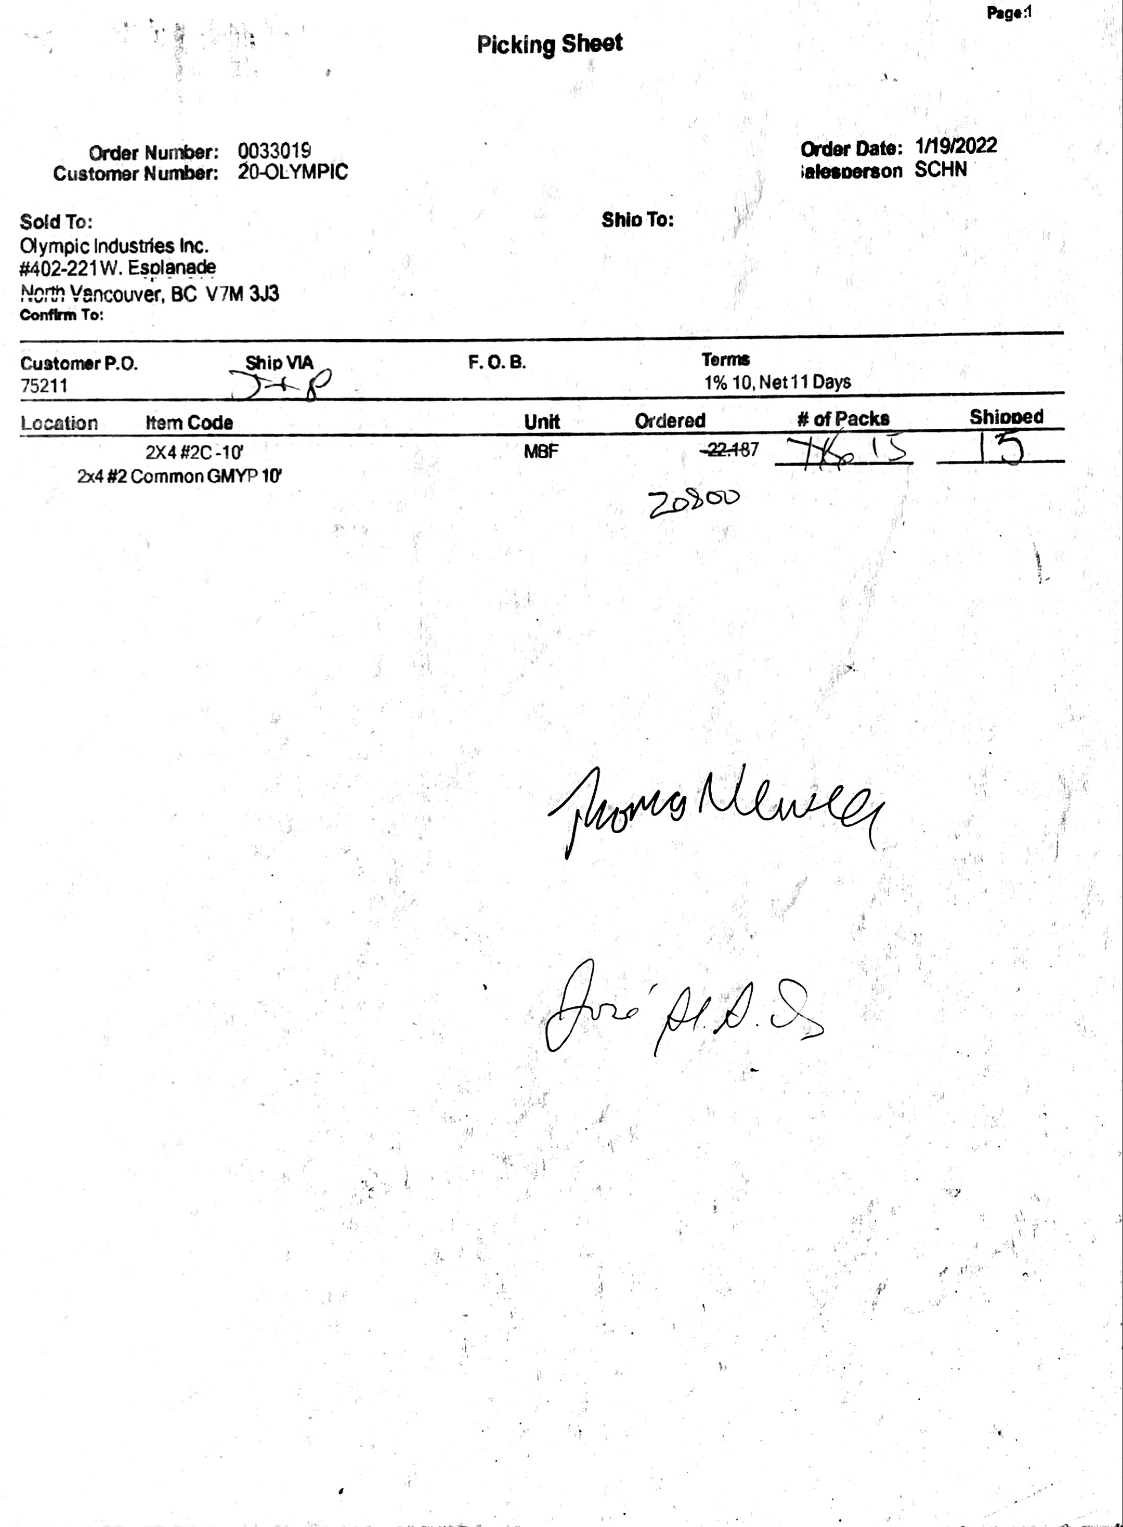 Page:1
Picking Sheet
Order Number: 0033019
Customer Number: 20-OLYMPIC
Order Date: 1/19/2022
alesperson SCHN
Sold To:
Olympic Industries Inc.
#402-221W. Esplanade
North Vancouver, BC V7M 3J3
Confirm To:
Ship To:
Customer P.O. Ship VIA F. O. B. Terms
75211 1% 10, Net 11 Days
Location Item Code Unit Ordered # of Packs Shipped
2X4 #2C -10' MBF 22.187 15 15
2x4 #2 Common GMYP 10'
20800
Thomas
José